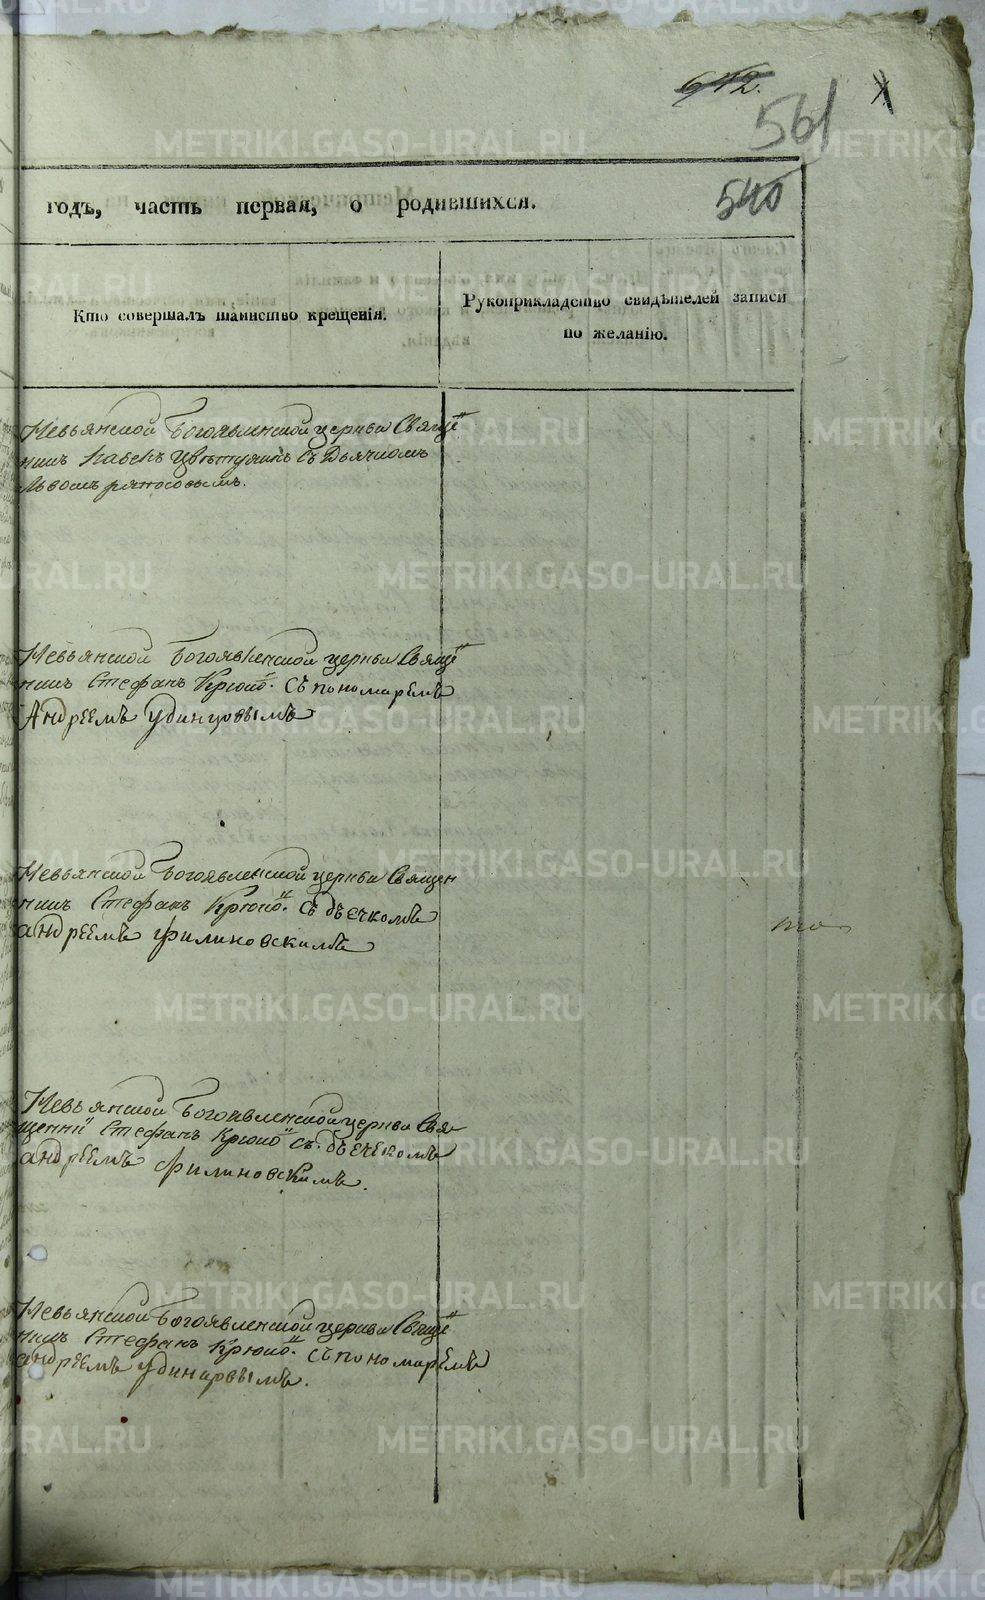 642.
561
540
годъ, часть первая, о родившихся.
Кто совершалъ таинство крещенія.
Рукоприкладство свидѣтелей записи
по желанію.
Невьянской Богоявленской церкви Свяще
никъ Павелъ Цвѣтухинъ съ Дьячкомъ
Львомъ
Невьянской Богоявленской церкви Свяще
никъ Стефанъ Крюко. съ пономаремъ
Андреемъ удинцовымъ
Невьянской Богоявленской церкви Священ
никъ Стефанъ Крюко. съ дьечкомъ
андреемъ филиновскимъ
Невьянской Богоявленской церкви Свя
щенни Стефанъ Крюко съ дьечекомъ
андреемъ филиновскимъ.
Невьянской Богоявленской церкви Свяще
никъ Стефанъ Крюко. съ пономаремъ
андреемъ удинцовымъ.
METRIKI.GASO-URAL.RU